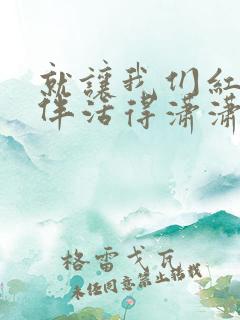 就讓我们紅
伴活得瀟瀟
格雷戈瓦
未经同意禁止转载